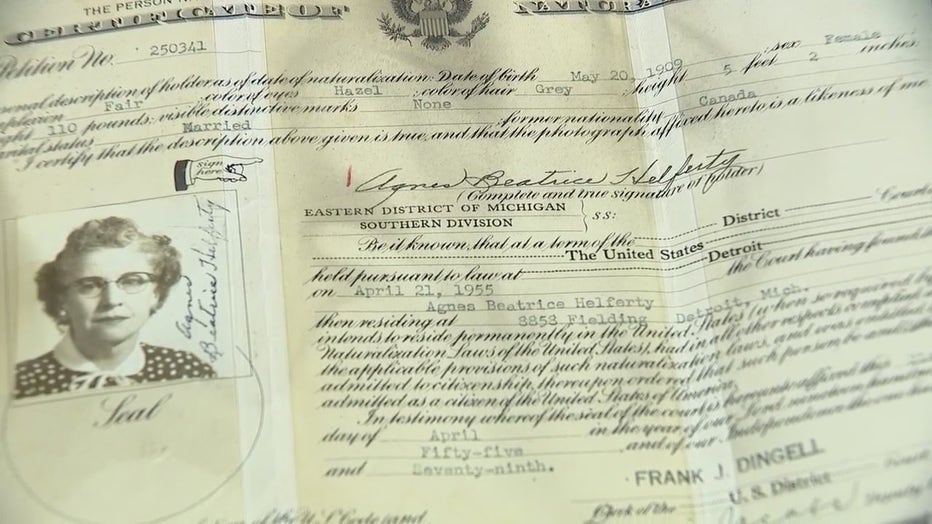 THE PERSON
CERTIFICATE OF NATURA
Petition No. 250341
personal description of holder as of date of naturalization: Date of birth May 20, 1909 ; sex Female
Fair ; color of eyes Hazel ; color of hair Grey ; height 5 feet 2 inches;
110 pounds; visible distinctive marks None ; former nationality Canada
marital status Married
I certify that the description above given is true, and that the photograph affixed hereto is a likeness of me
sign here
Agnes Beatrice Helferty
(Complete and true signature of holder)
EASTERN DISTRICT OF MICHIGAN
SOUTHERN DIVISION
ss:
Be it known, that at a term of the District Court
The United States
held pursuant to law at Detroit
on April 21, 1955 the Court having found that
Agnes Beatrice Helferty
then residing at 8858 Fielding Detroit, Mich.
intends to reside permanently in the United States (when so required by
Naturalization Laws of the United States), had in all other respects complied
the applicable provisions of such naturalization laws, and was entitled
admitted to citizenship, thereupon ordered that such person be
admitted as a citizen of the United States of America.
In testimony whereof the seal of the court is hereunto affixed this
day of April in the year of our Lord nineteen hundred
Fifty-five and of our Independence the one
and Seventy-ninth.
FRANK J. DINGELL
U. S. District
Clerk of the
Agnes
Beatrice Helferty
Seal
of the U.S. Code (and